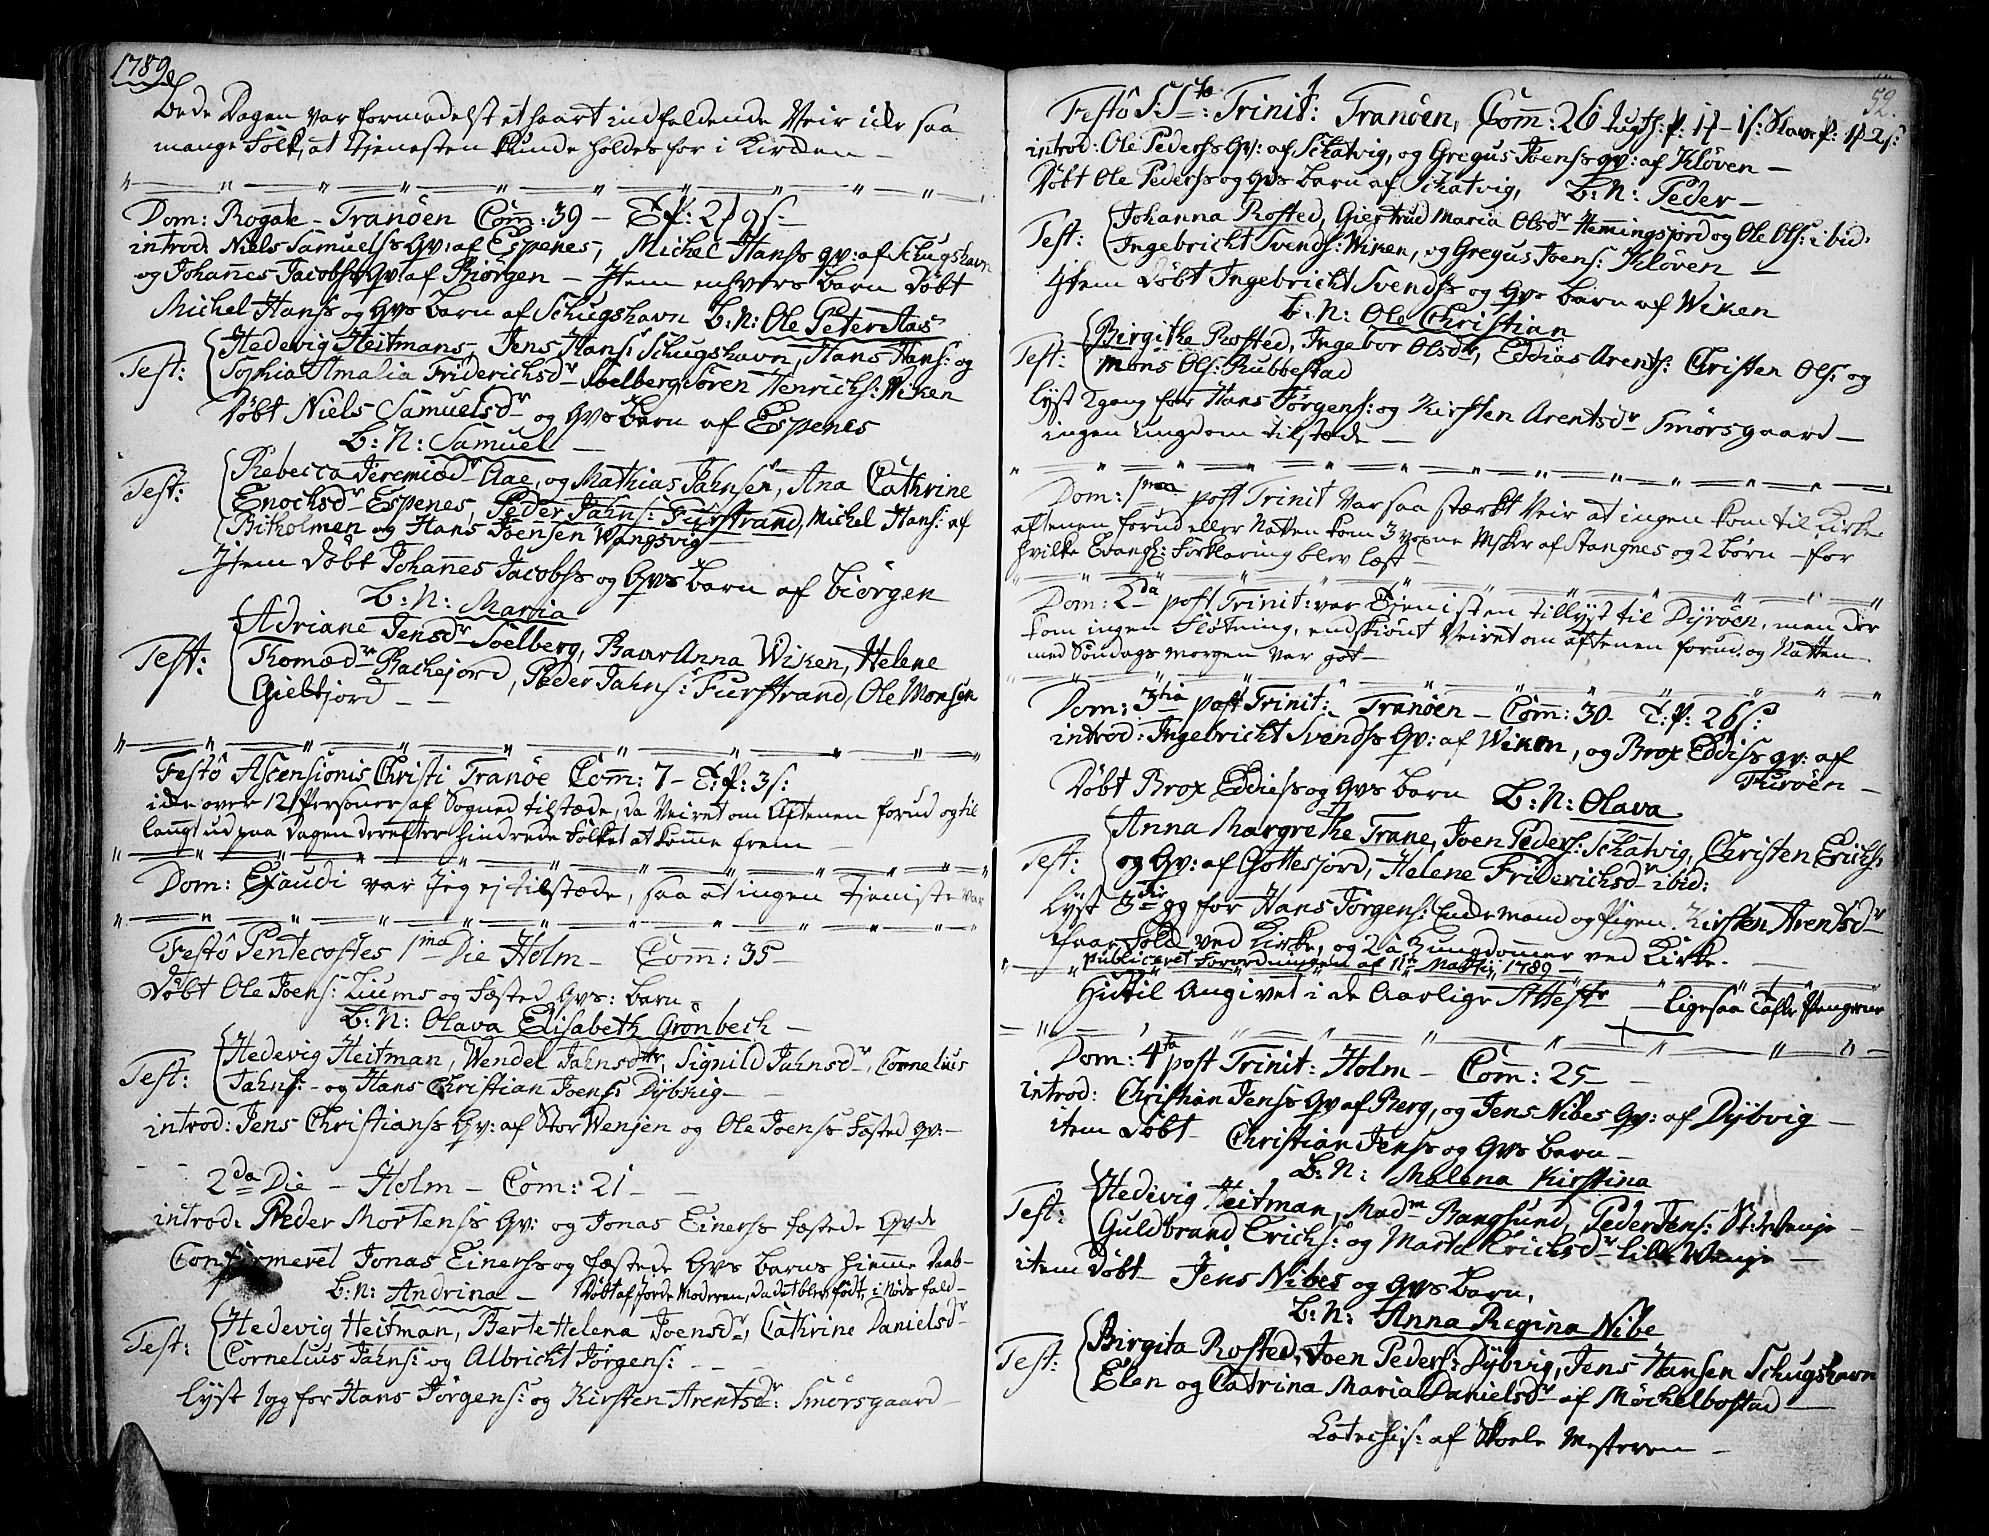 1789
Bede Dagen var formedelst et haart indfaldende Veir icke saa
mange Folk, at Tjenesten kunde holdes for i Kircken —
Dom: Rogate - Tranöen Com: 39 —
introd: Niels Samuelss Qv: af Espenes, Michel Hanss qv: af Schugshavn
og Johanes Jacobss Qv: af Biorgen — Item enhvers barn Döbt
Michel Hanss og Qvs barn af Schugshavn b:N: Ole Peter Aas
Test: Hedevig Heitmans, Jens Hans: Schugshavn, Hans Hans: og
Sophia Amalia Friderichsdr Soelberg, Sören Henrichs: Wiken
Döbt Niels Samuelsdr og Qvs barn af Espenes
b:N: Samuel —
Test: Rebecca Jeremiædr Aae, og Mathias Jahnsen, Ana Cathrine
Enochsdr Espenes, Peder Jahns: Furstrand, Michel Hans: af
Bitholmen og Hans Joensen Wangsvig —
Item Döbt Johanes Jacobss og Qvs barn af Biörgen
b:N: Maria
Test: Adriane Jensdr Soelberg, Baar Anna Wiken, Helene
Thomædr Rachejord, Peder Jahns: Furstrand, Ole Monsen
Giebfjord — —
Festo Ascensionis Christi Tranöe Com: 7 — T:p: 3s:
icke over 12 Personer af Sognet tilstæde, da Veiret om Aftenen forud og til
langt ud paa Dagen derefter hindrede Folket at kome frem —
Dom: Exaudi var jeg ej tilstæde, saa at ingen Tjeniste var
Festo Pentecostes 1ma Die Holm — Com: 35 —
Döbt Ole Joens: Liums og Fæsted Qvs: barn
b:N: Olava Elisabeth Grönbech —
Test: Hedevig Heitman, Wendel Jahnsdtr, Signild Jahnsdr, Cornelius
Jahns: — og Hans Christian Joens: Dybvig —
introd: Jens Christianss Qv: af Stor Wensen og Ole Joenss Fæsted qv: —
2da Die — Holm — Com: 21 —
introd: Peder Mortenss Qv: og Jonas Einerss fæstede Qvde
Confirmeret Jonas Einerss og fæstede Qvs barns Hieme Daab —
b:N: Andrina — Döbt af Jorde Moderen, da det blev födt, i Nöds fald —
Test: Hedevig Heitman, Berte Helena Joensdr, Cathrine Danielsdr
Cornelius Jahns: og Albricht Jörgens: — — —
lyst 1 gg for Hans Jörgens: og Kirsten Arentsdr: Smörsgaard —
52.
Festo S:S: Trinit: Tranöen, Com: 26
introd: Ole Pederss Qv: af Schatvig, og Gregus Joenss qv: af Klöven —
Döbt Ole Pederss og Qvs barn af Schatvig, b:N: Peder —
Test: Johanna Rosted, Giertrud Maria Olsdr Hemingsjord og Ole Ols: ibid:
Ingebricht Svends: Wiken, og Gregus Joens: Klöven —
Item Döbt Ingebricht Svendss og Qvs barn af Wiken
b:N: Ole Christian
Test: Birgithe Rosted, Ingebor Olsdr, Eddias Arents: Christen Ols: og
Mons Ols: Rubbestad
lyst 2 gang for Hans Jörgens: og Kirsten Arentsdr Smörsgaard —
ingen ungdom tilstæde —
Dom: 1ma post Trinit var saa stærkt Veir at ingen kom til Kirke
aftenen forud eller Natten kom 3 voxne Msker af Stangnes og 2 börn — for
hvilke Evangl: Forklaring blev læst —
Dom: 2da post Trinit: var Tienisten tillyst til Dyröen, men der
kom ingen Fløtning, endskiönt Veiret om aftenen forud, og Natten
med Söndags morgen var got —
Dom: 3tia post Trinit: Tranöen — Com: 30 — T:p: 26s:
introd: Ingebricht Svendss Qv: af Wiken, og Brox Eddiss qv: af
Tiuröen —
Döbt Brox Eddiess og Qvs barn b:N: Olava
Test: Anna Margrethe Trane, Joen Peders: Schatvig, Christen Erichs:
og Qv: af Gottesjord, Helene Friderichsdr ibid:
lyst 3die gg for Hans Jörgens: Enke mand og Pigen Kirsten Arentsdr
faae Folk ved Kirke, og 2 a 3 ungdommer ved Kirke. —
Publiceret Forordningen af 11te Martii 1789 —
Hidtil Angivet i de Aarlige Attester — ligesaa Tafle Pengene
Dom: 4ta post Trinit: Holm — Com: 25 —
introd: Christian Jenss Qv af Berg, og Jens Nibes Qv: af Dybvig —
item Döbt Christian Jenss og Qvs barn —
b:N: Malena Kirstina
Test: Hedevig Heitman, Madm Bangsund, Peder Jens: St: Wensje —
Guldbrand Erichs: og Marta Erichsdr lille Wensje —
item Döbt Jens Nibes og Qvs barn,
b:N: Anna Regina Nibe
Test: Birgita Rosted, Joen Peders: Dybvig, Jens Hansen Schugshavn
Elen og Catrina Maria Danielsdr af Möchelbostad —
Catechis: af Skole Mesteren —